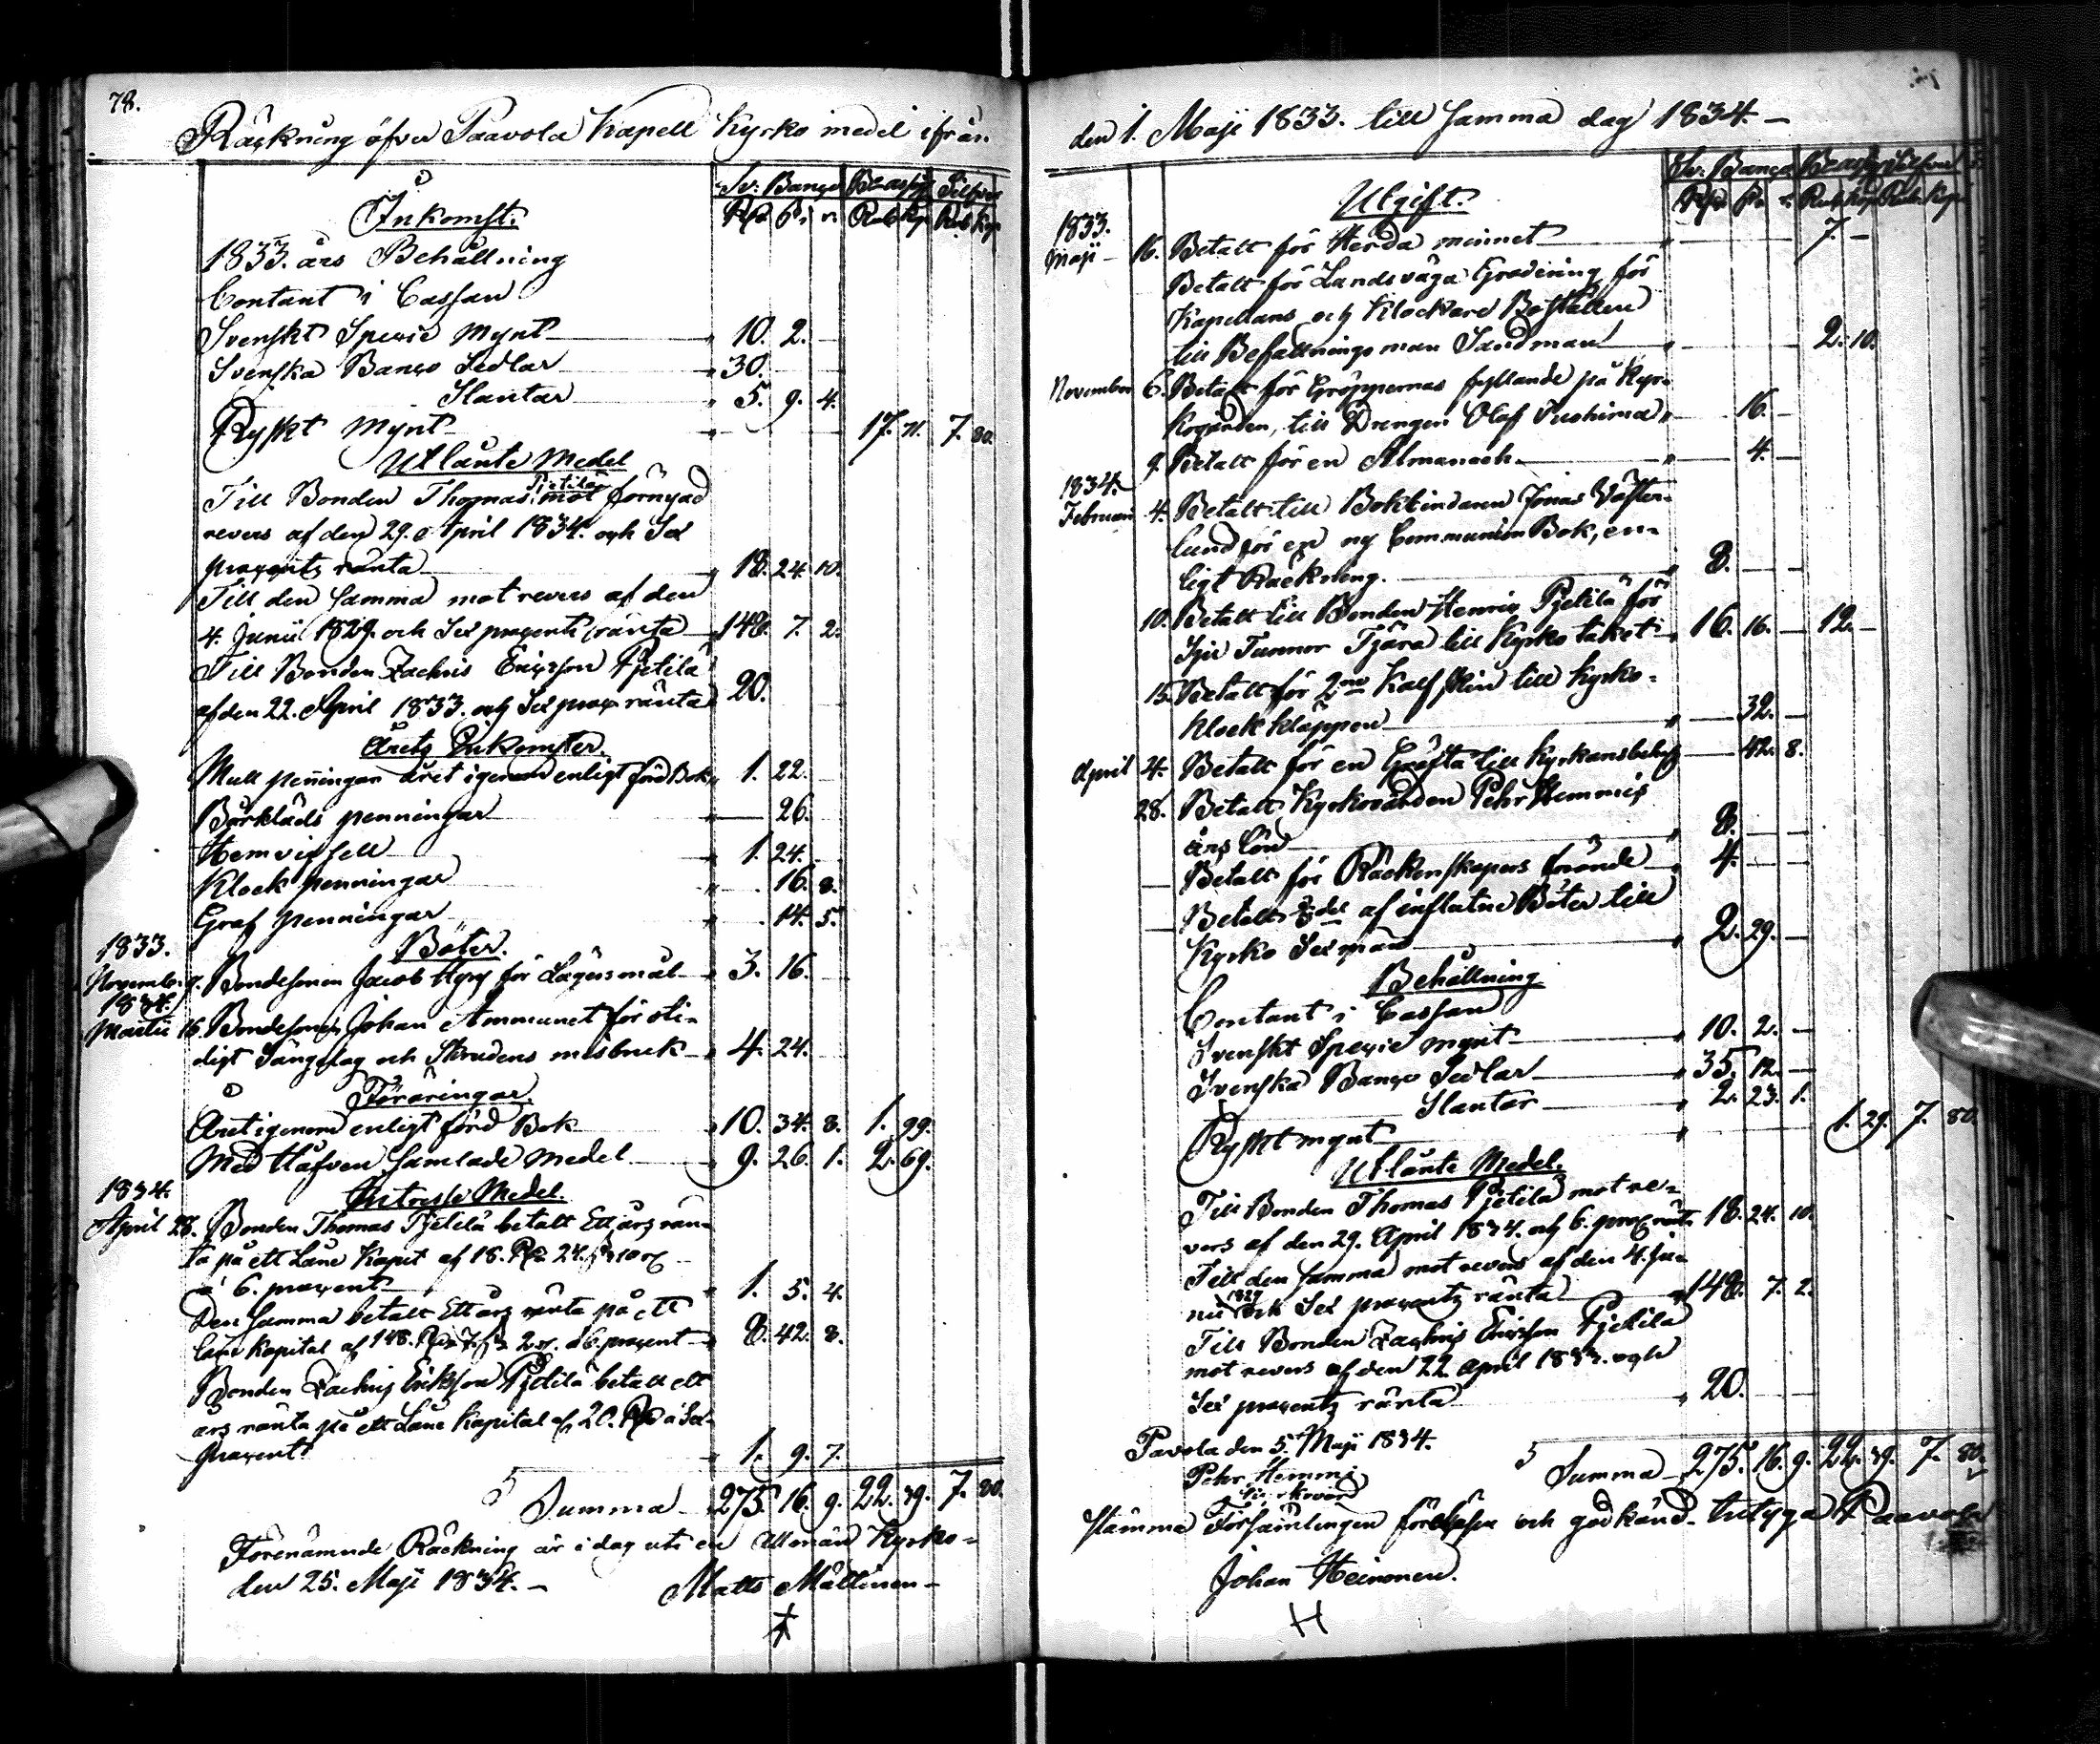 78.
Räckning öfver Paavola Kapell Kyrko medel ifrån
Sv: Banco B:co ass: Silfver
Rd s r. Rub. Kop. Rub. Kop.
Inkomst.
1833. års Behållning
Contant i Cassan
Svenskt Specie Mynt 10. 2. —
Svenska Banco Sedlar 30.
Slantar 5. 9. 4.
Ryskt Mynt 17. 71. 7. 80.
Utlånte Medel
Till Bonden Thomas Pjetilä mot förnyad
revers af den 29. April 1834. och Sex
procents ränta 18. 24. 10.
Till den samma mot revers af den
4. Junii 1829. och Sex procents ränta 148. 7. 2.
Till Bonden Zachris Ericsson Pjetilä
af den 22. April 1833. och Sex proc: ränta 20.
Årets Inkomster.
Mull penningar året igenom enligt förd Bok 1. 22. —
Bårkläds penningar — 26. —
Hemvigsell 1. 24. —
Klock penningar 16. 8.
Graf penningar 14. 5.
1833. Böter.
Novemb. 9. Bondesonen Jacob Hyry för Lägersmål 3. 16. —
1834.
Martii 16. Bondesonen Johan Ammunet för oti-
digt Sängelag och Skrudens misbruk 4. 24.
Föräringar.
Året igenom enligt förd Bok 10. 34. 8. 1. 99.
Med Håfven samlade medel 9. 26. 1. 2. 69.
1834. Intresse Medel.
April 28. Bonden Thomas Pjetilä betalt Ett års rän-
ta på ett Låne Kapit af 18. Rd 24. s 10 r
a 6. procent 1. 5. 4.
Den samma betalt Ett års ränta på ett
Låne Kapital af 148. Rd 7. s 2 r. a 6. procent 8. 42. 8.
Bonden Zachris Eriksson Pjetilä betalt ett
års ränta på ett Låne Kapital af 20. Rd a Sex
procent 1. 9. 7.
Summa 275. 16. 9. 22. 39. 7. 80.
Förenämnde Räckning är i dag uti en allmän Kyrko-
den 25. Maji 1834. — Matts Mattinen —
den 1. Maji 1833. till samma dag 1834. —
Sv: Banco B:co ass: Silfver
Rd s r. Rub. Kop. Rub. Kop.
Utgift.
1833.
Maji — 16. Betalt för Herda minnet 7. —
Betalt för Landsväga Gradering för
Kapellans och Klockare Boställen
till Befallningsman Sandman 2. 10.
November 6. Betalt för Groppernas fyllande på Kyr-
kogården, till Drengen Olof 16. —
9. Betalt för en Almanach 4. —
1834.
Februari 4. Betalt till Bokbindaren Jonas Väster-
lund för en ny Communion Bok, en-
ligt Räckning. 8. — —
10. Betalt till Bonden Henric Pjetilä för
Sju Tunnor Tjära till Kyrko taket 16. 16. — 12. —
15. Betalt för 2ne Kalfskin till Kyrko-
klock kläppen 32. —
April 4. Betalt för en till Kyrkans behof 42. 8.
28. Betalt Kyrkovärden Pehr Hemmis
års lön 8. — —
— Betalt för Räckenskapers förande 4. — —
— Betalt del af influtne Böter till
Kyrko Sexmän 2. 29. —
Behållning
Contant i Cassan
Svenskt Specie mynt 10. 2. —
Svenska Banco Sedlar 35. 12. —
Slantar 2. 23. 1.
Ryskt mynt 1. 29. 7. 80.
Utlånte Medel.
Till Bonden Thomas Pjetilä mot re-
vers af den 29. April 1834. och 6. proc ränta 18. 24. 10.
Till den samma mot revers af den 4. Ju-
nii 1829 och Sex procents ränta 148. 7. 2.
Till Bonden Zachris Ericsson Pjetilä
mot revers af den 22 April 1833. och
Sex procents ränta 20. — —
Pavola den 5. Maji 1834.
Summa 275. 16. 9. 22. 39. 7. 80.
Pehr Hemmi
Kyrkovärd
stämma Församlingen föreläsen och godkänd. Intyga Paavola
Johan Heinonen.
H